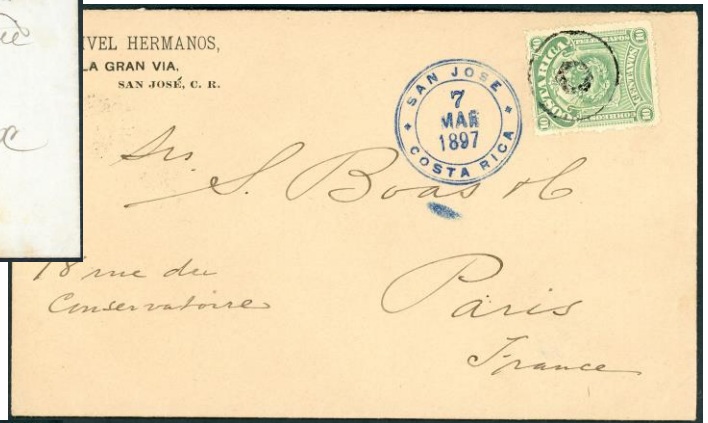 IVEL HERMANOS,
LA GRAN VIA,
SAN JOSÉ, C. R.
SAN JOSE
7
MAR
1897
COSTA RICA
COSTA RICA
CORREOS
10
10
10
10
S. Boas & C
18 rue du
Conservatoire
Paris
France